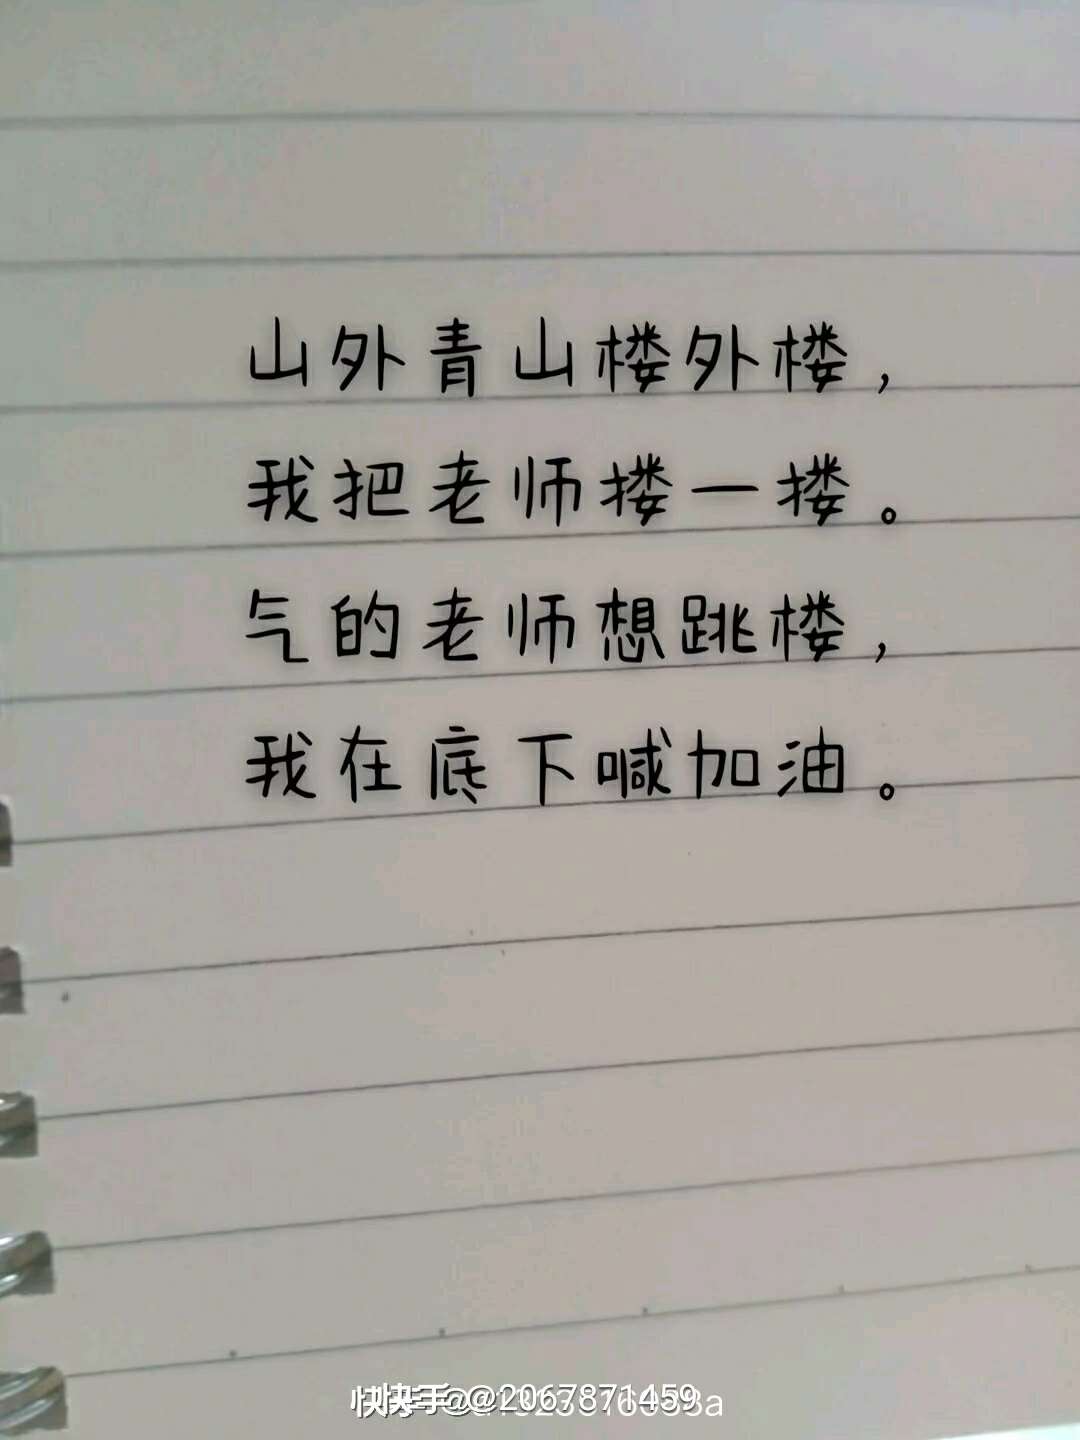 山外青山楼外楼，
我把老师搂一搂。
气的老师想跳楼，
我在底下喊加油。
快手 @2067871459